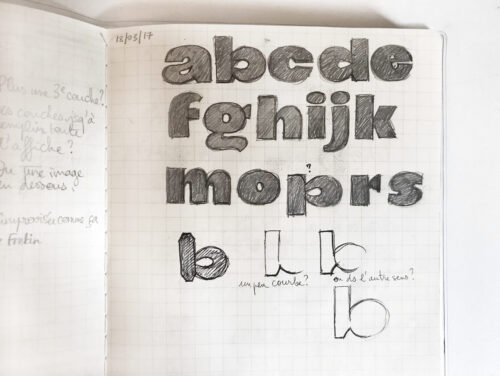 Plus une 3e couche?
es couches jsq'à
remplir toute
l'affiche?
Ou une image
en dessous?
improvisée comme ça
13/03/17
abcde
fghijk
?
moprs
b l b
un peu courbe? ou ds l'autre sens?
b